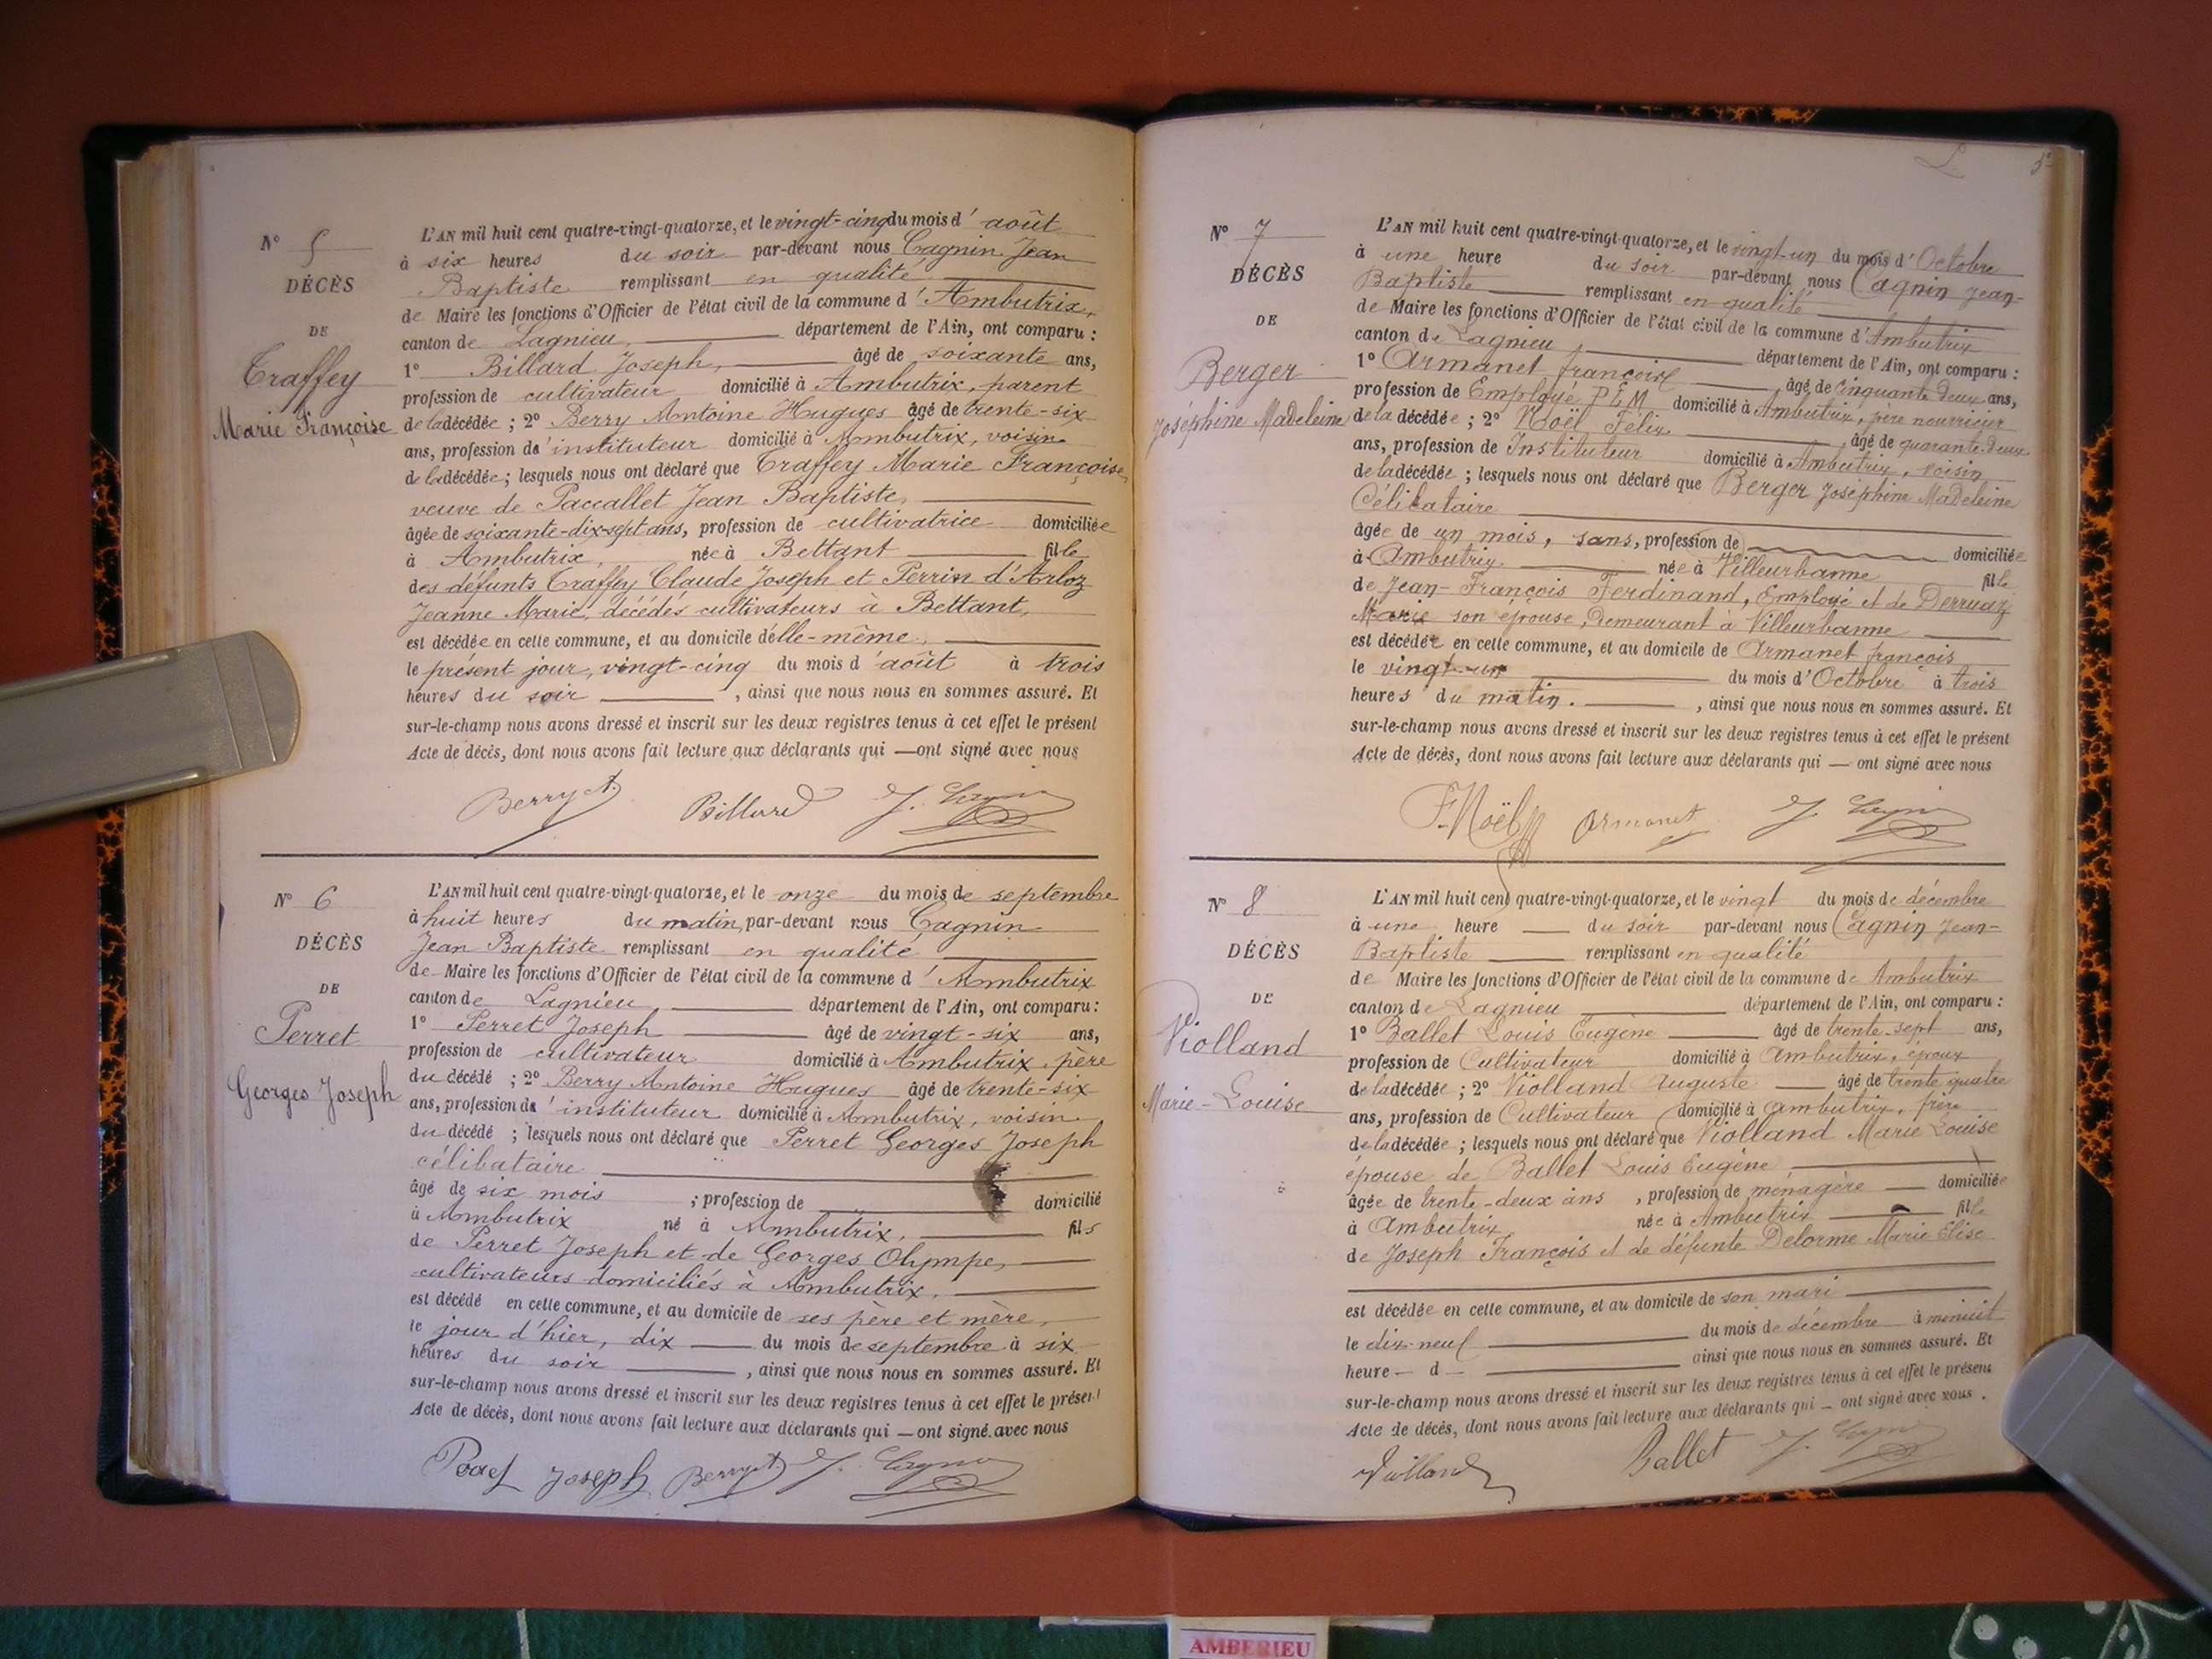 N° 5
DÉCÈS
DE
Traffey
Marie Françoise
L'AN mil huit cent quatre-vingt-quatorze, et le vingt-cinq du mois d'août
à six heures du soir par-devant nous Cagnin Jean
Baptiste remplissant en qualité
de Maire les fonctions d'Officier de l'état civil de la commune d'Ambutrix,
canton de Lagnieu, département de l'Ain, ont comparu :
1° Billard Joseph, âgé de soixante ans,
profession de cultivateur domicilié à Ambutrix, parent
de la décédée ; 2° Berry Antoine Hugues âgé de trente-six
ans, profession d'instituteur domicilié à Ambutrix, voisin
de la décédée ; lesquels nous ont déclaré que Traffey Marie Françoise,
veuve de Paccallet Jean Baptiste,
âgée de soixante-dix-sept ans, profession de cultivatrice domiciliée
à Ambutrix, née à Bettant fille
des défunts Traffey Claude Joseph et Perrin d'Arloz
Jeanne Marie, décédés cultivateurs à Bettant,
est décédée en cette commune, et au domicile d'elle-même,
le présent jour, vingt-cinq du mois d'août à trois
heures du soir , ainsi que nous nous en sommes assuré. Et
sur-le-champ nous avons dressé et inscrit sur les deux registres tenus à cet effet le présent
Acte de décès, dont nous avons fait lecture aux déclarants qui — ont signé avec nous
Berry A. Billard J. Cagnin
N° 6
DÉCÈS
DE
Perret
Georges Joseph
L'AN mil huit cent quatre-vingt-quatorze, et le onze du mois de septembre
à huit heures du matin, par-devant nous Cagnin
Jean Baptiste remplissant en qualité
de Maire les fonctions d'Officier de l'état civil de la commune d'Ambutrix
canton de Lagnieu, département de l'Ain, ont comparu :
1° Perret Joseph âgé de vingt-six ans,
profession de cultivateur domicilié à Ambutrix, père
du décédé ; 2° Berry Antoine Hugues âgé de trente-six
ans, profession d'instituteur domicilié à Ambutrix, voisin
du décédé ; lesquels nous ont déclaré que Perret Georges Joseph
célibataire
âgé de six mois ; profession de domicilié
à Ambutrix né à Ambutrix, fils
de Perret Joseph et de Georges Olympe,
cultivateurs domiciliés à Ambutrix,
est décédé en cette commune, et au domicile de ses père et mère,
le jour d'hier, dix du mois de septembre à six
heures du soir , ainsi que nous nous en sommes assuré. Et
sur-le-champ nous avons dressé et inscrit sur les deux registres tenus à cet effet le présent
Acte de décès, dont nous avons fait lecture aux déclarants qui — ont signé avec nous
Perret Joseph Berry A. J. Cagnin
5
N° 7
DÉCÈS
DE
Berger
Joséphine Madeleine
L'AN mil huit cent quatre-vingt-quatorze, et le vingt-un du mois d'Octobre
à une heure du soir par-devant nous Cagnin Jean-
Baptiste remplissant en qualité
de Maire les fonctions d'Officier de l'état civil de la commune d'Ambutrix
canton de Lagnieu département de l'Ain, ont comparu :
1° Armanet françois âgé de cinquante deux ans,
profession de Employé PLM domicilié à Ambutrix, père nourricier
de la décédée ; 2° Noël Félix âgé de quarante-deux
ans, profession de Instituteur domicilié à Ambutrix, voisin
de la décédée ; lesquels nous ont déclaré que Berger Joséphine Madeleine
Célibataire
âgée de un mois, sans, profession de domiciliée
à Ambutrix née à Villeurbanne fille
de Jean-François Ferdinand, Employé et de Derruaz
Marie son épouse, demeurant à Villeurbanne
est décédée en cette commune, et au domicile de Armanet françois
le vingt-un du mois d'Octobre à trois
heures du matin. , ainsi que nous nous en sommes assuré. Et
sur-le-champ nous avons dressé et inscrit sur les deux registres tenus à cet effet le présent
Acte de décès, dont nous avons fait lecture aux déclarants qui — ont signé avec nous
F. Noël Armanet J. Cagnin
N° 8
DÉCÈS
DE
Violland
Marie-Louise
L'AN mil huit cent quatre-vingt-quatorze, et le vingt du mois de décembre
à une heure — du soir par-devant nous Cagnin Jean-
Baptiste remplissant en qualité
de Maire les fonctions d'Officier de l'état civil de la commune de Ambutrix
canton de Lagnieu département de l'Ain, ont comparu :
1° Ballet Louis Eugène âgé de trente-sept ans,
profession de Cultivateur domicilié à Ambutrix, époux
de la décédée ; 2° Violland Auguste âgé de trente quatre
ans, profession de Cultivateur domicilié à Ambutrix, frère
de la décédée ; lesquels nous ont déclaré que Violland Marie Louise
épouse de Ballet Louis Eugène
âgée de trente-deux ans , profession de ménagère domiciliée
à Ambutrix née à Ambutrix fille
de Joseph François et de défunte Delorme Marie Elise
est décédée en cette commune, et au domicile de son mari
le dix-neuf du mois de décembre à minuit
heure — d — ainsi que nous nous en sommes assuré. Et
sur-le-champ nous avons dressé et inscrit sur les deux registres tenus à cet effet le présent
Acte de décès, dont nous avons fait lecture aux déclarants qui — ont signé avec nous.
Violland Ballet J. Cagnin
AMBERIEU